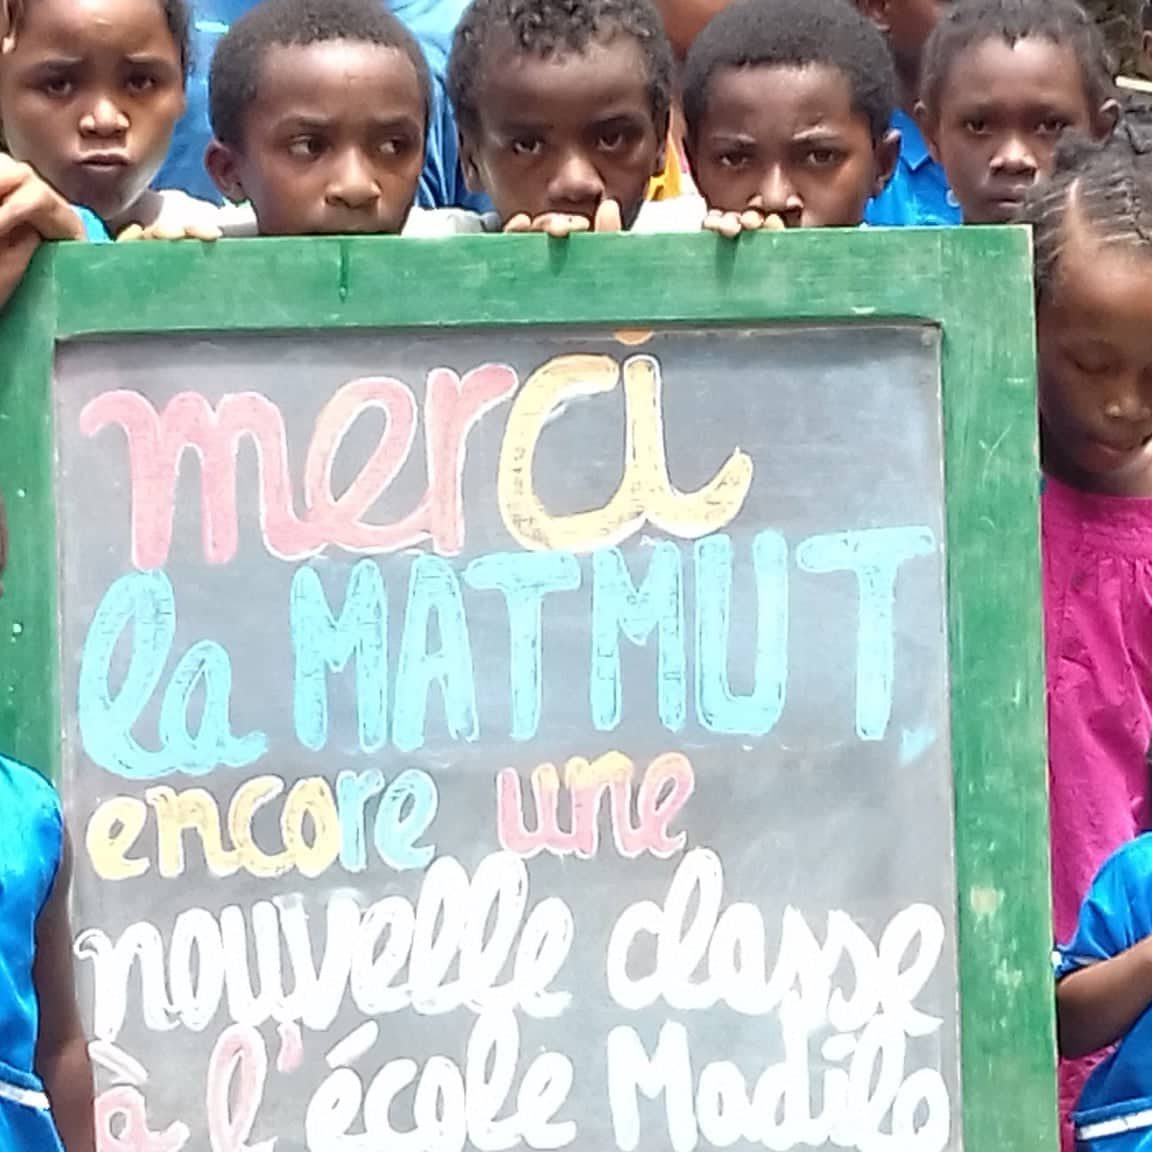 merci
la MATMUT
encore une
nouvelle classe
à l'école Madilo